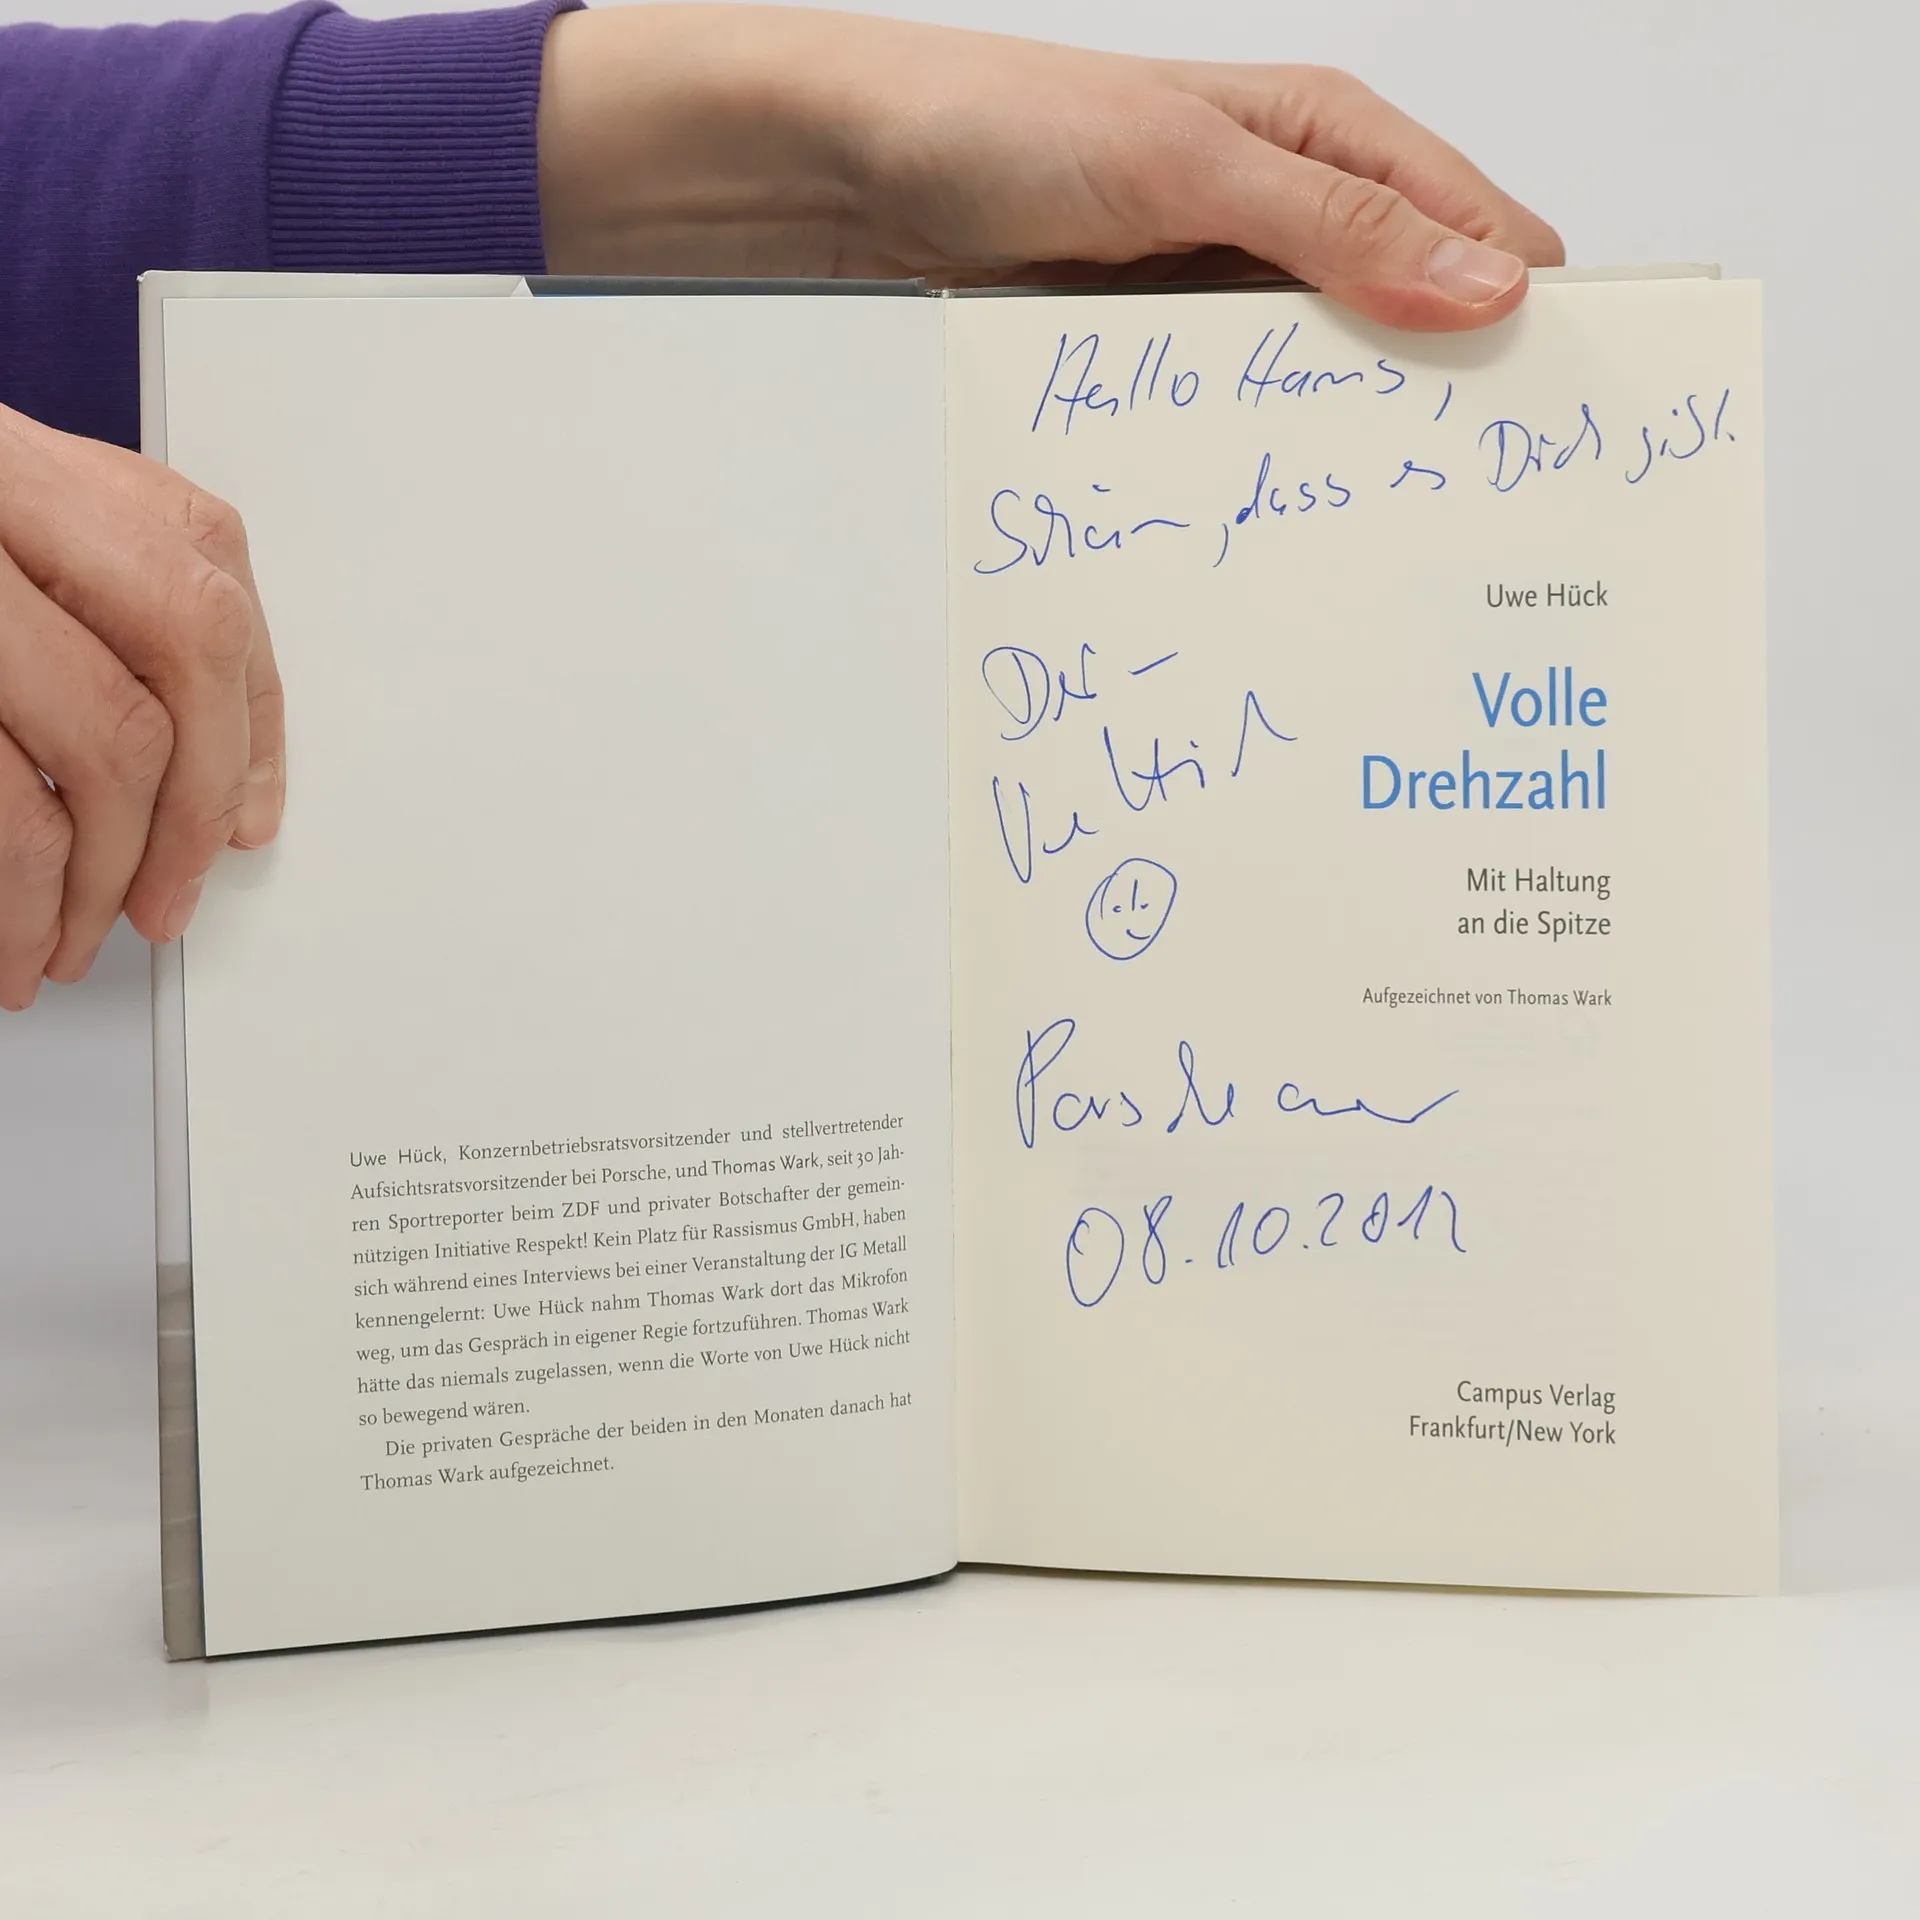 Uwe Hück, Konzernbetriebsratsvorsitzender und stellvertretender
Aufsichtsratsvorsitzender bei Porsche, und Thomas Wark, seit 30 Jah-
ren Sportreporter beim ZDF und privater Botschafter der gemein-
nützigen Initiative Respekt! Kein Platz für Rassismus GmbH, haben
sich während eines Interviews bei einer Veranstaltung der IG Metall
kennengelernt: Uwe Hück nahm Thomas Wark dort das Mikrofon
weg, um das Gespräch in eigener Regie fortzuführen. Thomas Wark
hätte das niemals zugelassen, wenn die Worte von Uwe Hück nicht
so bewegend wären.
Die privaten Gespräche der beiden in den Monaten danach hat
Thomas Wark aufgezeichnet.
Hallo Hans,
Schön, dass es Dich gibt.
Uwe Hück
Volle
Drehzahl
Mit Haltung
an die Spitze
Aufgezeichnet von Thomas Wark
08.10.2012
Campus Verlag
Frankfurt/New York